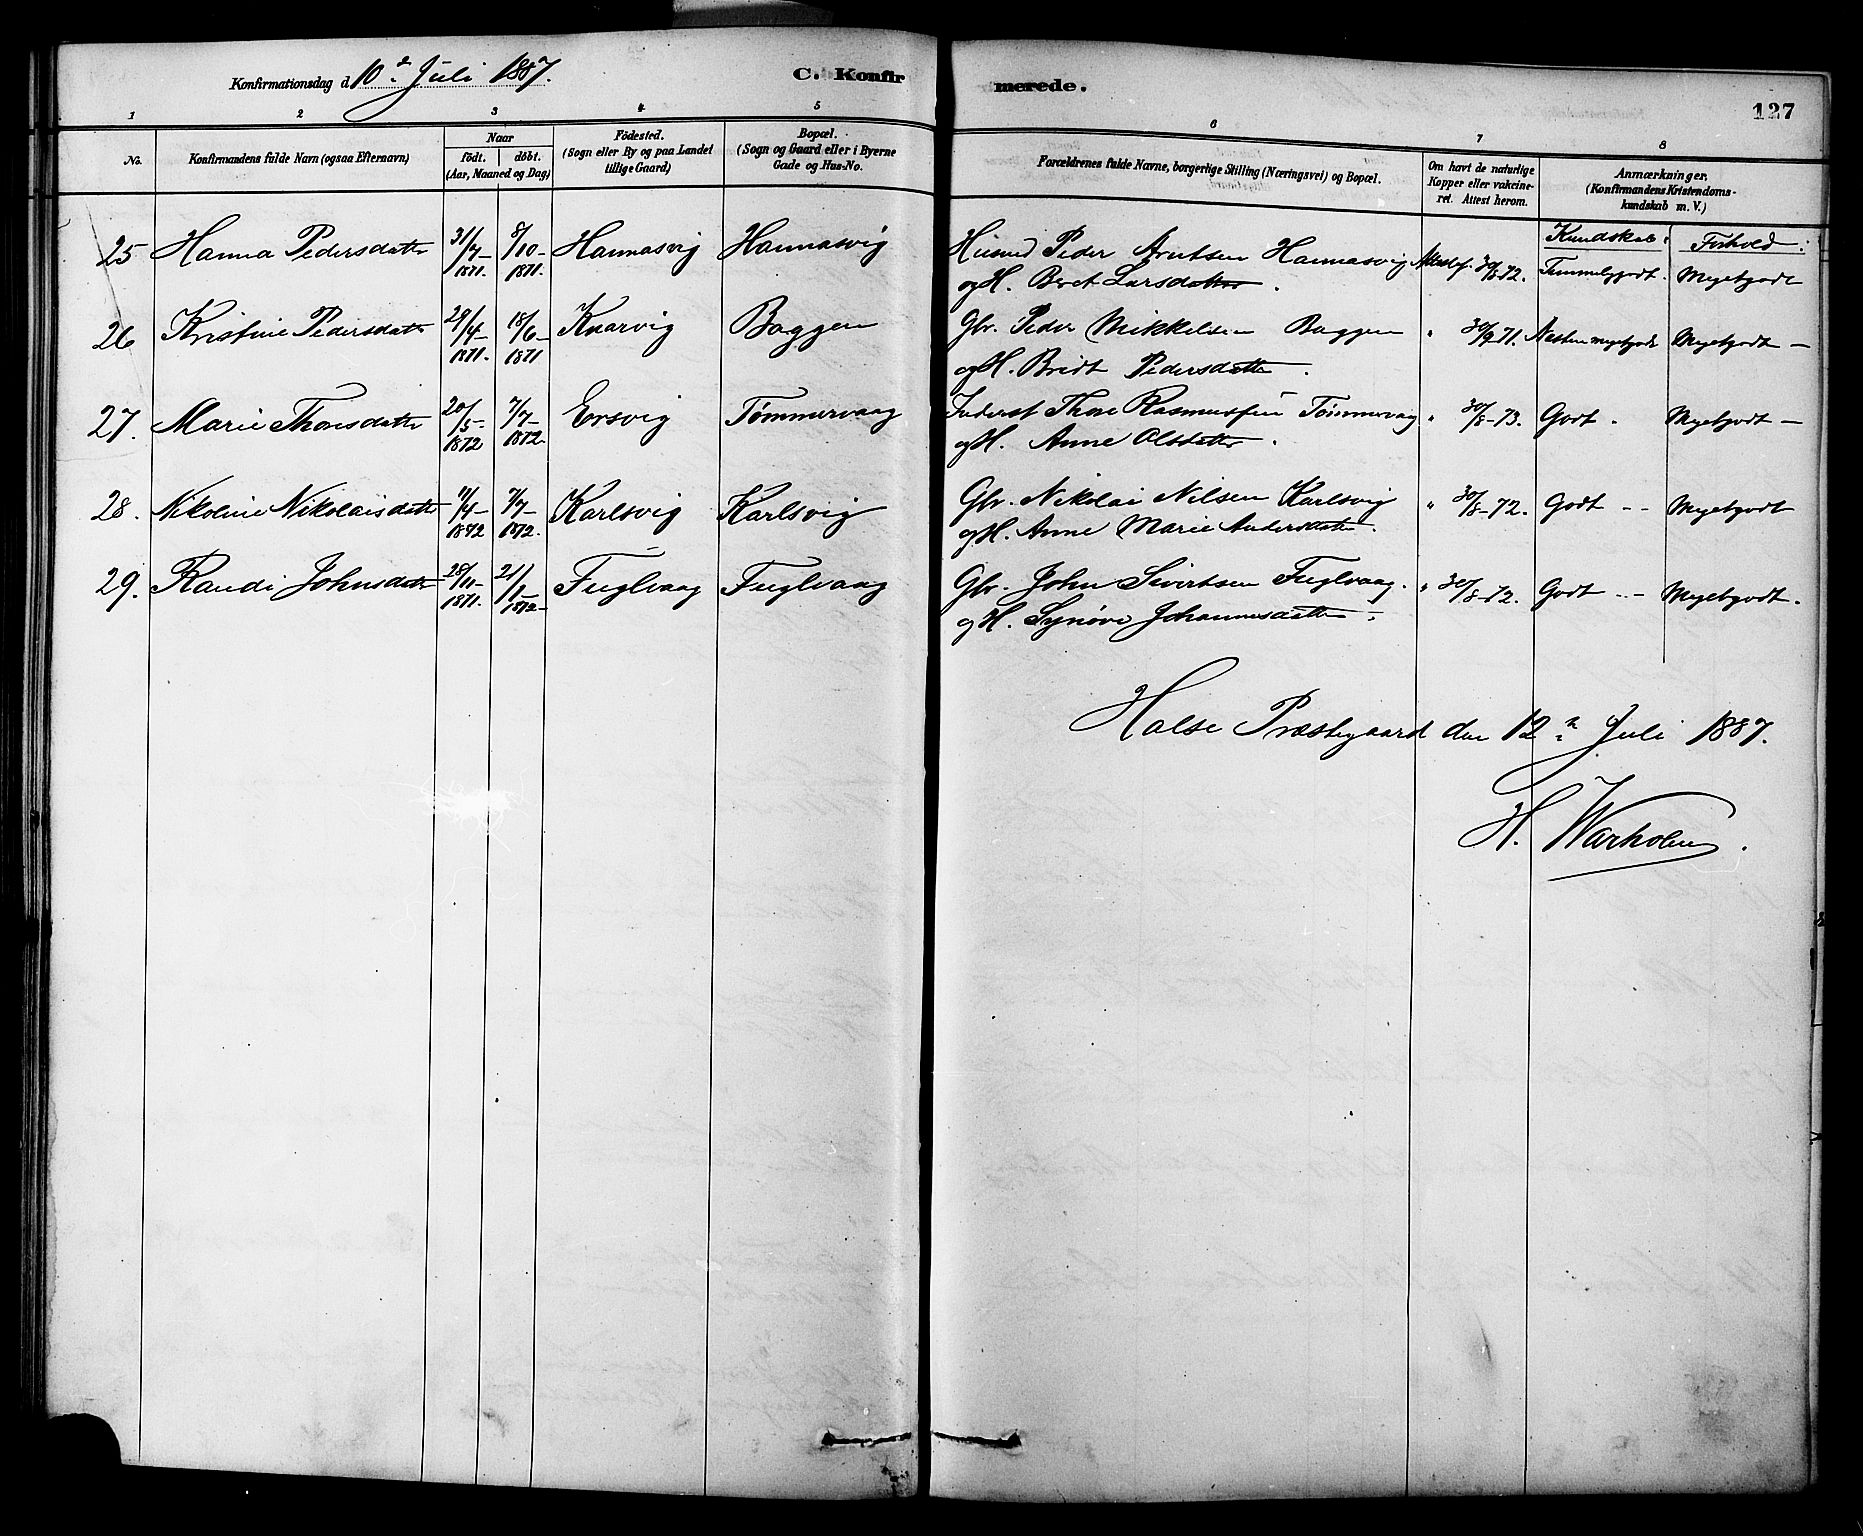 Konfirmationsdag d. 10de Juli 1887.
C. Konfir
merede.
127
1 2 3 4 5 6 7 8
No.
Konfirmandens fulde Navn (ogsaa Efternavn)
Naar
födt. döbt.
(Aar, Maaned og Dag)
Födested.
(Sogn eller By og paa Landet
tillige Gaard)
Bopæl.
(Sogn og Gaard eller i Byerne
Gade og Hus-No.
Forældrenes fulde Navne, borgerlige Stilling (Næringsvei) og Bopæl.
Om havt de naturlige
Kopper eller vakcine-
ret. Attest herom.
Anmærkninger.
(Konfirmandens Kristendoms-
kundskab m. V.)
Kundskab: Forhold:
25 Hanna Pedersdatter 31/7-1871. 8/10-1871. Hannasvig Hannasvig Husmd Peder Arntsen Hannasvig Attest af 30/8-72. Temmeliggodt. Megetgodt
og H. Beret Larsdatter.
26 Kristine Pedersdatter 29/4-1871. 18/6-1871 Knarvig Baggen Gbr. Peder Mikkelsen Baggen " 30/9-71. Næsten megetgodt Megetgodt —
og H. Bredt Pedersdatter.
27. Marie Thoresdatter 20/5-1872 7/7-1872 Ersvig Tømmervaag Inderst Thore Rasmussen Tømmervaag " 30/8-73. Godt. Megetgodt —
og H. Anne Olsdatter.
28. Nikoline Nikolaisdatter 11/4-1872 7/7-1872. Karlsvig Karlsvig Gbr. Nikolai Nilsen Karlsvig " 30/8-72. Godt -- Megetgodt
og H. Anne Marie Andersdatter.
29. Randi Johnsdatter 28/10-1871. 21/1-1872 Fuglvaag Fuglvaag Gbr. John Sivertsen Fuglvaag. " 30/8-72. Godt -- Megetgodt.
og H. Synøve Johannesdatter.
Halse Præstegaard den 12te Juli 1887.
H. Warholm.